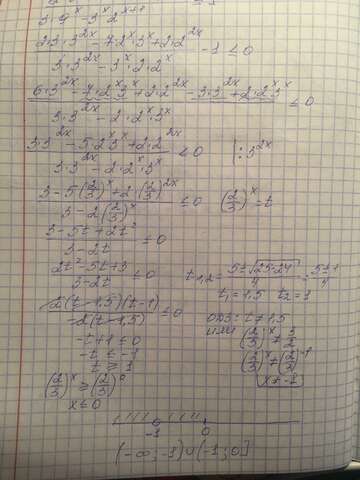 3·9ˣ - 3ˣ 2ˣ⁺¹
2·3·3²ˣ - 7·2ˣ·3ˣ + 2·2²ˣ / 3·3²ˣ - 3ˣ·2·2ˣ - 1 ≤ 0
6·3²ˣ - 7·2ˣ3ˣ + 2·2²ˣ - 3·3²ˣ + 2·2ˣ3ˣ / 3·3²ˣ - 2·2ˣ·3ˣ ≤ 0
3·3²ˣ - 5·2ˣ3ˣ + 2·2²ˣ / 3·3²ˣ - 2·2ˣ·3ˣ ≤ 0 | : 3²ˣ
3 - 5(2/3)ˣ + 2·(2/3)²ˣ / 3 - 2(2/3)ˣ ≤ 0 (2/3)ˣ = t
3 - 5t + 2t² / 3 - 2t ≤ 0
2t² - 5t + 3 / 3 - 2t ≤ 0 t₁,₂ = 5±√25-24 / 4 = 5±1 / 4
t₁ = 1,5 t₂ = 1
2(t - 1,5)(t - 1) / -2(t - 1,5) ≤ 0 ОДЗ: t ≠ 1,5
-t + 1 ≤ 0 или (2/3)ˣ ≠ 3/2
-t ≤ -1 (2/3)ˣ ≠ (2/3)⁻¹
t ≥ 1 x ≠ -1
(2/3)ˣ ≥ (2/3)⁰
x ≤ 0
-1 0
(-∞; -1) ∪ (-1; 0]